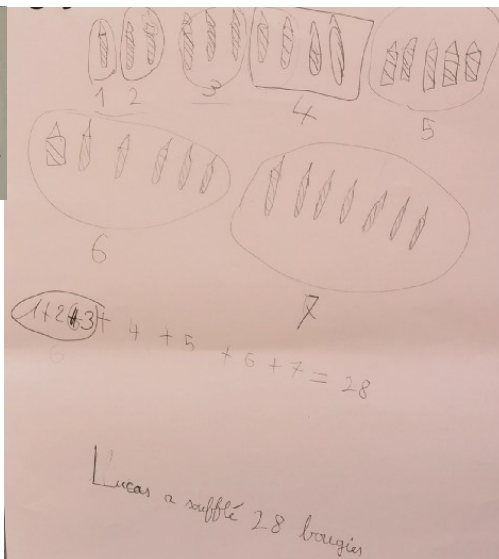 1 2 3 4 5
6 7
1+2+3+ 4 + 5 + 6 + 7 = 28
6
Lucas a soufflé 28 bougies